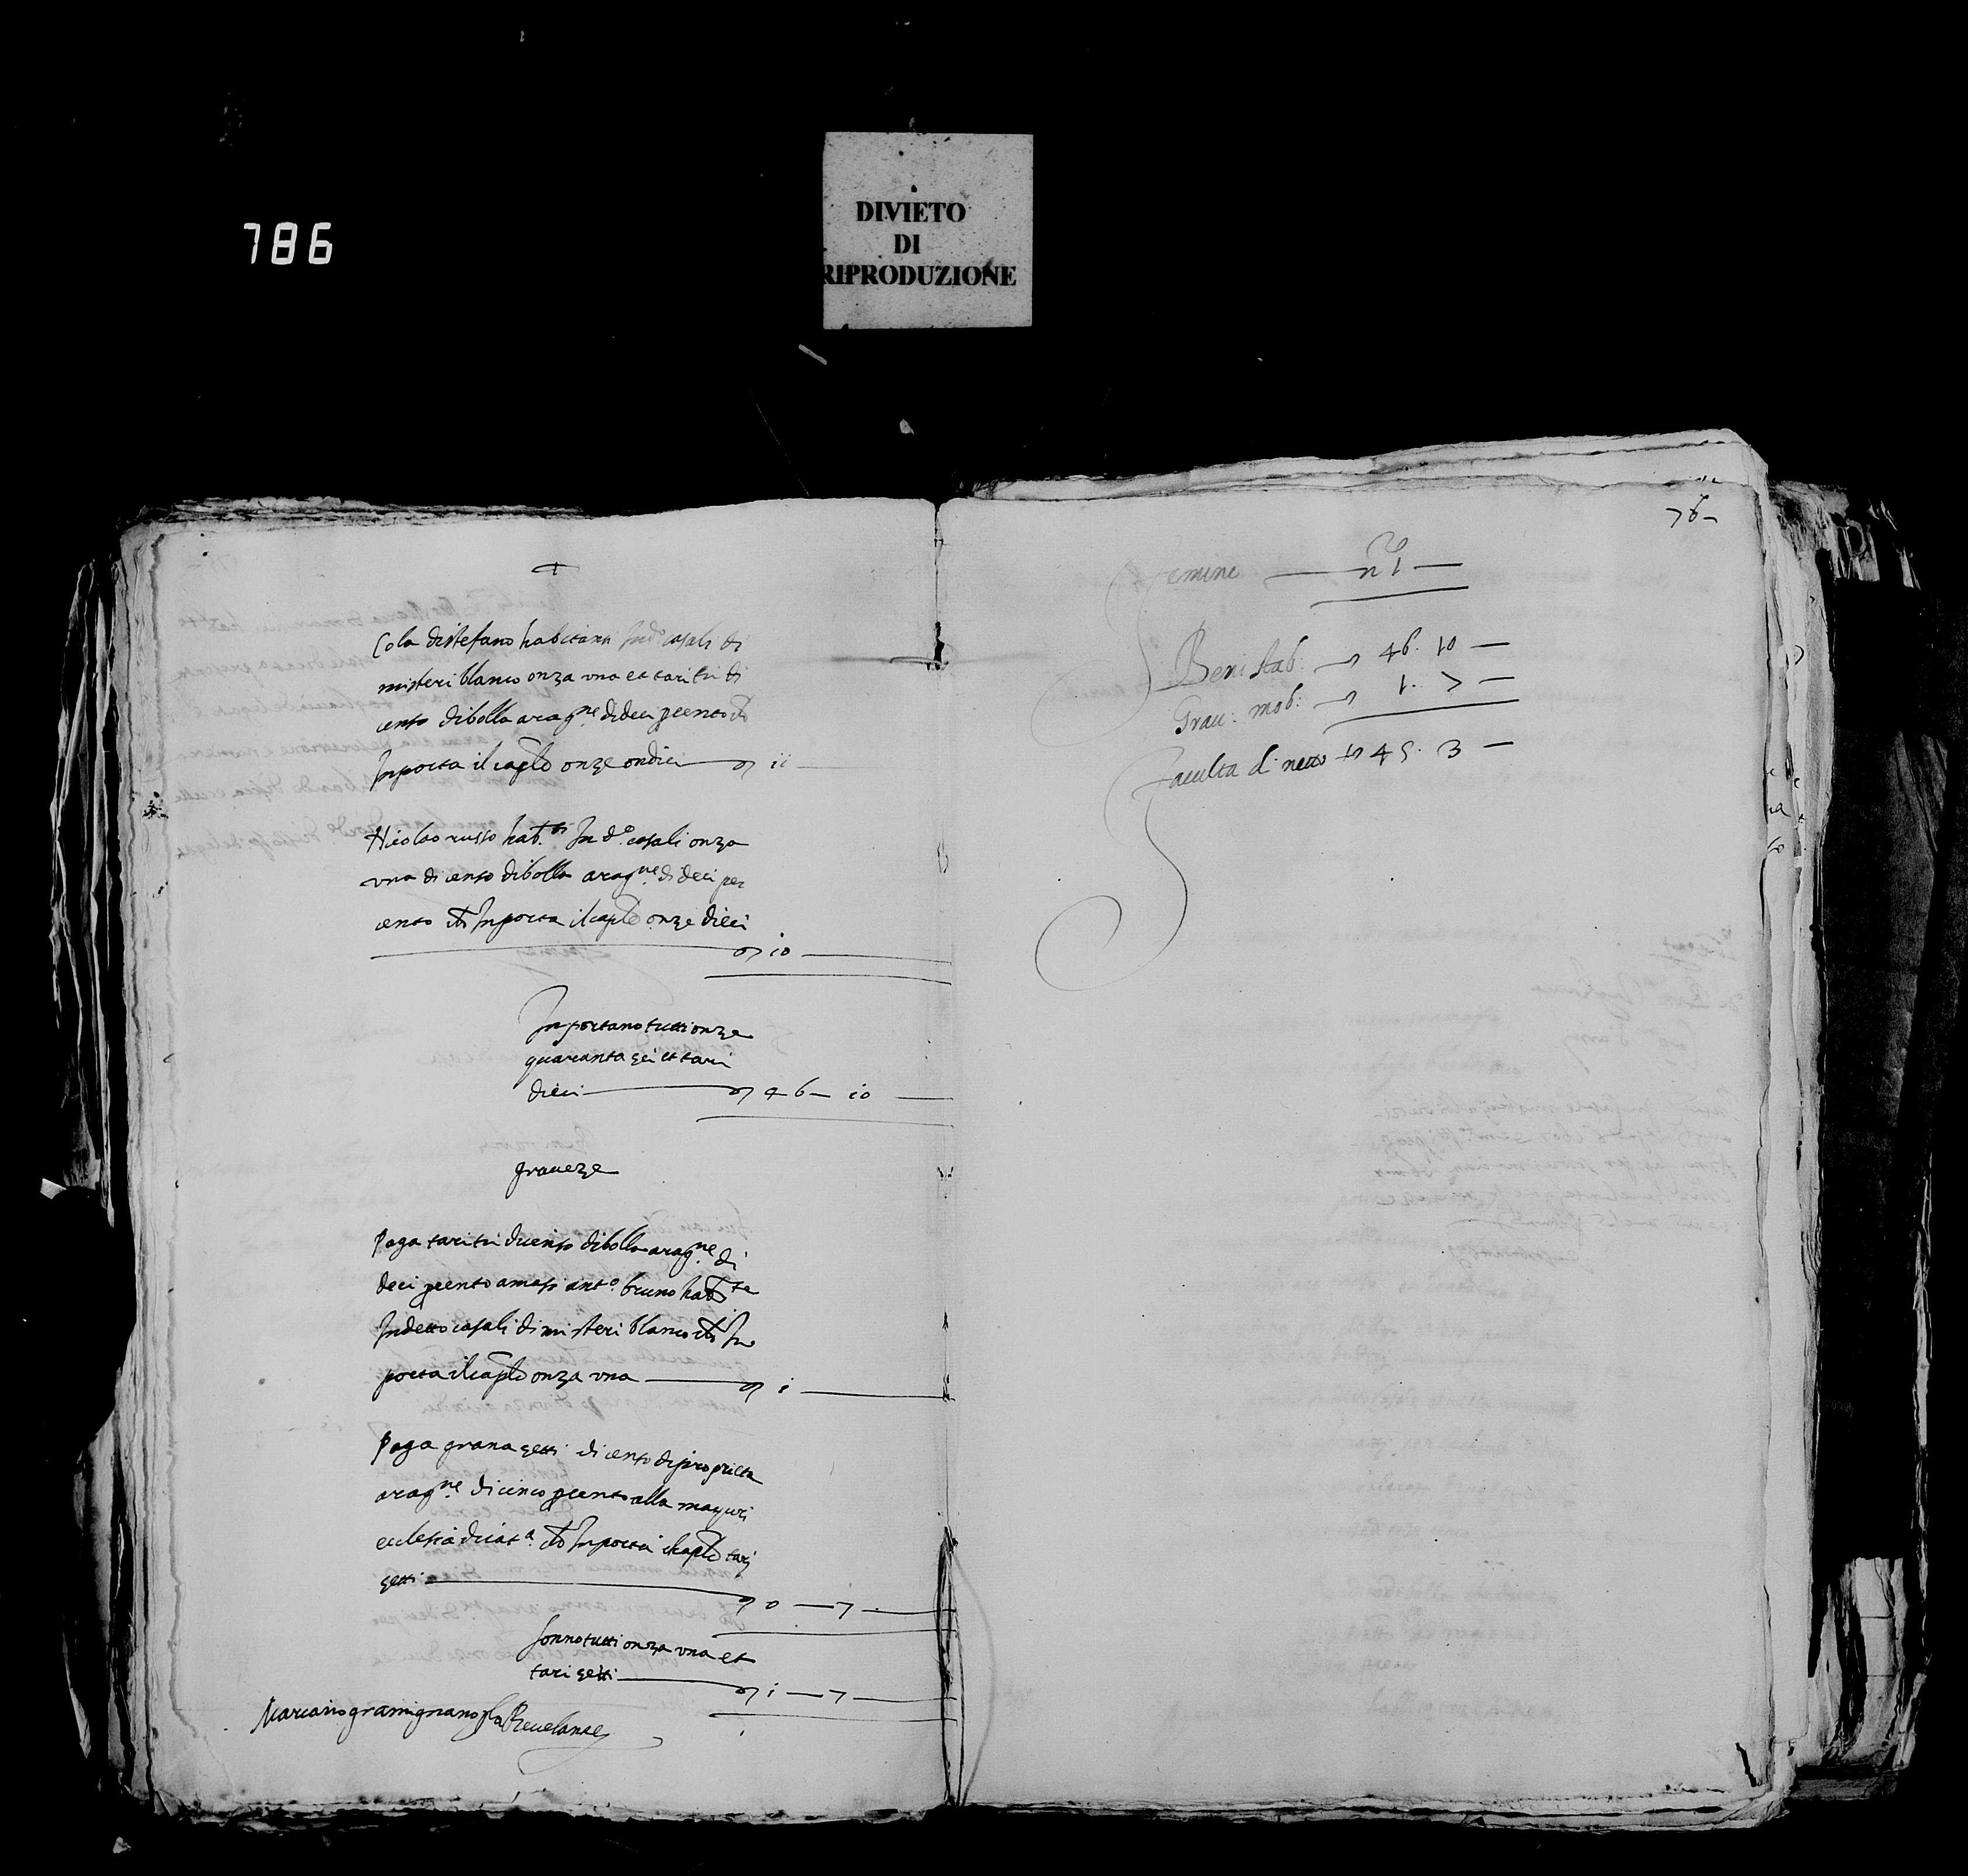 786
DIVIETO
DI
RIPRODUZIONE
Cola distefano habitanti In do casali di
misteri blanco onza una et tari tri di
censo di bolla aragne di deci pcento
Importa il caple onze ondici ii
Nicolao russo hab.ti In do casali onza
una di censo di bolla aragne di deci per
cento Importa il caple onze dieci
io
Importano tutti onze
quaranta sei et tari
dieci 46 — io
graveze
Paga tari tri di censo di bolla aragne di
deci pcento a masi anto bruno habte
In detto casali di misteri blanco Im
porta il caple onza una i
Paga grana setti di censo di proprieta
aragne di cinco pcento alla mayuri
ecclesia di cata Importa il caple tari
setti 0 — 7
sonno tutti onza una et
tari setti i — 7
Mariano gramignano p la Revelante
76
Femine n 1
Beni stab: 46. 10 —
Grav: mob: 1. 7 —
Faculta di netto 45. 3 —